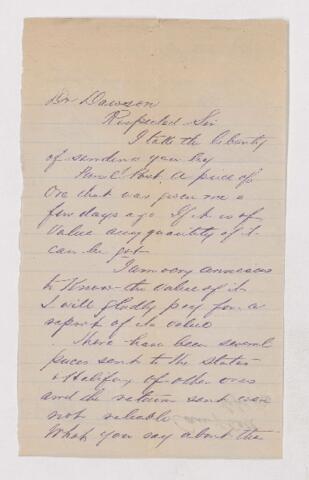 Dr Dawson
Respected Sir
I take the liberty
of sending you by
Parcel Post. A piece of
Ore that was given me a
few days ago. If it is of
Value any quantity of it
can be got
I am very anxious
to Know the value of it
I will gladly pay for a
report of its value
There have been several
pieces sent to the States
& Halifax of other ores
and the returns sent were
not reliable
What you say about the